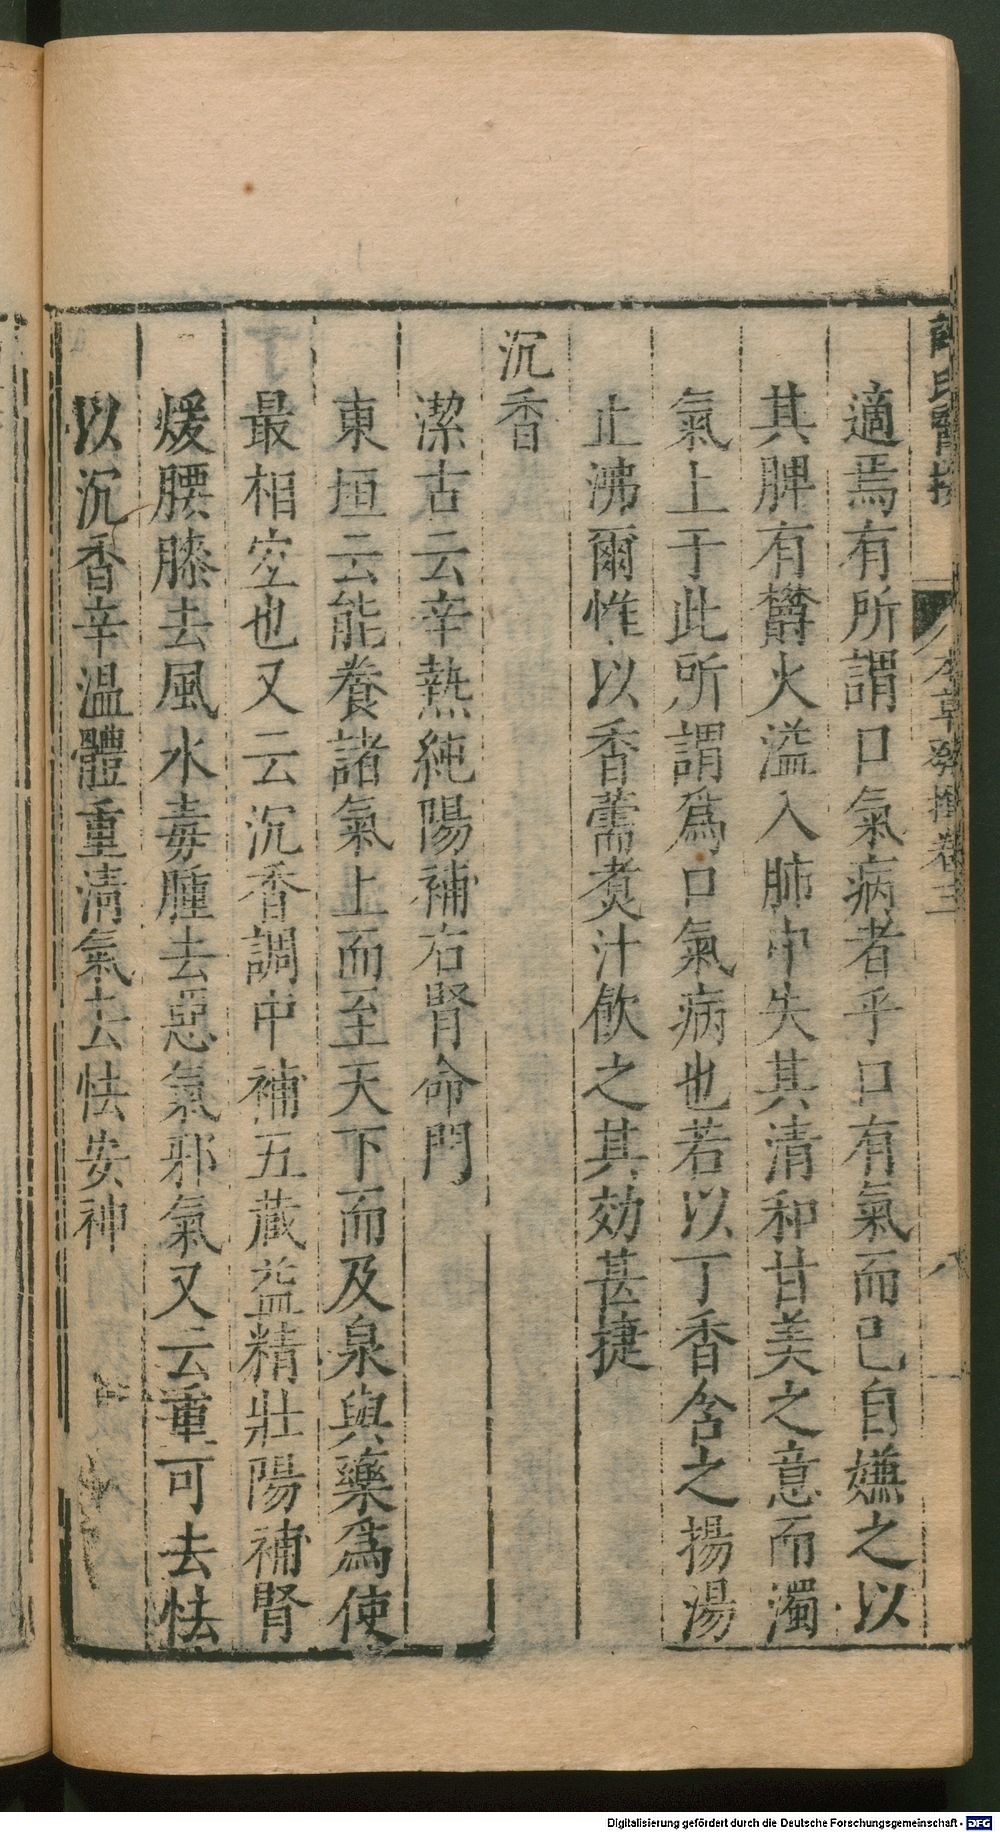 薛氏醫按 本草發揮卷三 八
適焉有所謂口氣病者乎口有氣而已自嫌之以
其脾有欝火溢入肺中失其清和甘美之意而濁
氣上于此所謂為口氣病也若以丁香含之揚湯
止沸爾惟以香薷煑汁飲之其効甚捷
沉香
潔古云辛熱純陽補右腎命門
東垣云能養諸氣上而至天下而及泉與藥為使
最相宜也又云沉香調中補五藏益精壯陽補腎
煖腰膝去風水毒腫去惡氣邪氣又云重可去怯
以沉香辛温體重清氣去怯安神
Digitalisierung gefördert durch die Deutsche Forschungsgemeinschaft - DFG